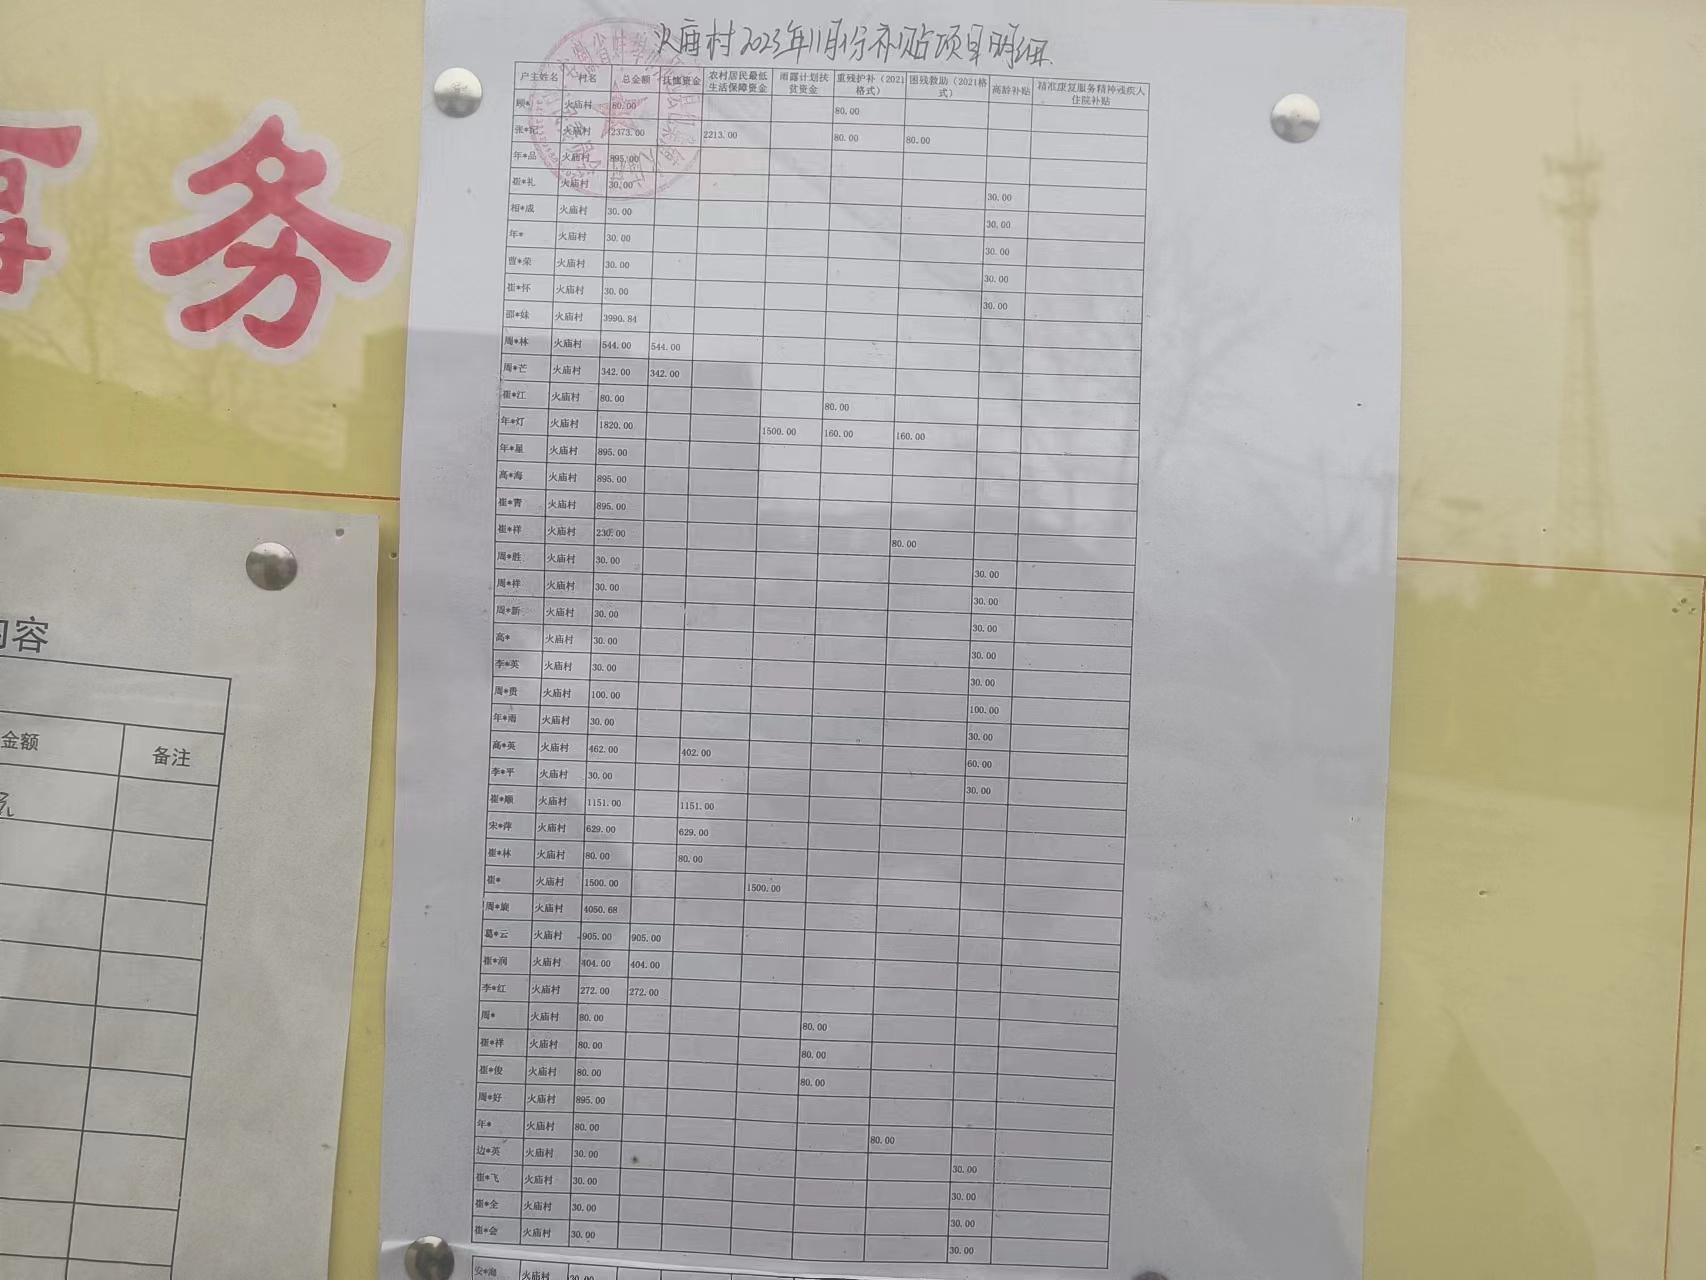 务
内容
金额 备注
火庙村2023年11月份补贴项目明细
户主姓名 村名 总金额 抚恤资金 农村居民最低生活保障资金 雨露计划扶贫资金 重残护补（2021格式） 困残救助（2021格式） 高龄补贴 精准康复服务精神残疾人住院补贴
顾* 火庙村 80.00 80.00
张*纪 火庙村 2373.00 2213.00 80.00 80.00
年*品 火庙村 895.00
崔*礼 火庙村 30.00 30.00
相*成 火庙村 30.00 30.00
年* 火庙村 30.00 30.00
曹*荣 火庙村 30.00 30.00
崔*怀 火庙村 30.00 30.00
邵*妹 火庙村 3990.84
周*林 火庙村 544.00 544.00
周*芒 火庙村 342.00 342.00
崔*江 火庙村 80.00 80.00
年*灯 火庙村 1820.00 1500.00 160.00 160.00
年*星 火庙村 895.00
高*海 火庙村 895.00
崔*青 火庙村 895.00
崔*祥 火庙村 230.00 80.00
周*胜 火庙村 30.00 30.00
周*祥 火庙村 30.00 30.00
周*新 火庙村 30.00 30.00
高* 火庙村 30.00 30.00
李*英 火庙村 30.00 30.00
周*贵 火庙村 100.00 100.00
年*雨 火庙村 30.00 30.00
高*英 火庙村 462.00 402.00 60.00
李*平 火庙村 30.00 30.00
崔*顺 火庙村 1151.00 1151.00
宋*萍 火庙村 629.00 629.00
崔*林 火庙村 80.00 80.00
崔* 火庙村 1500.00 1500.00
周*旋 火庙村 4050.68
葛*云 火庙村 905.00 905.00
崔*润 火庙村 404.00 404.00
李*红 火庙村 272.00 272.00
周* 火庙村 80.00 80.00
崔*祥 火庙村 80.00 80.00
崔*俊 火庙村 80.00 80.00
周*好 火庙村 895.00
年* 火庙村 80.00 80.00
边*英 火庙村 30.00 30.00
崔*飞 火庙村 30.00 30.00
崔*全 火庙村 30.00 30.00
崔*会 火庙村 30.00 30.00
安*海 火庙村 30.00